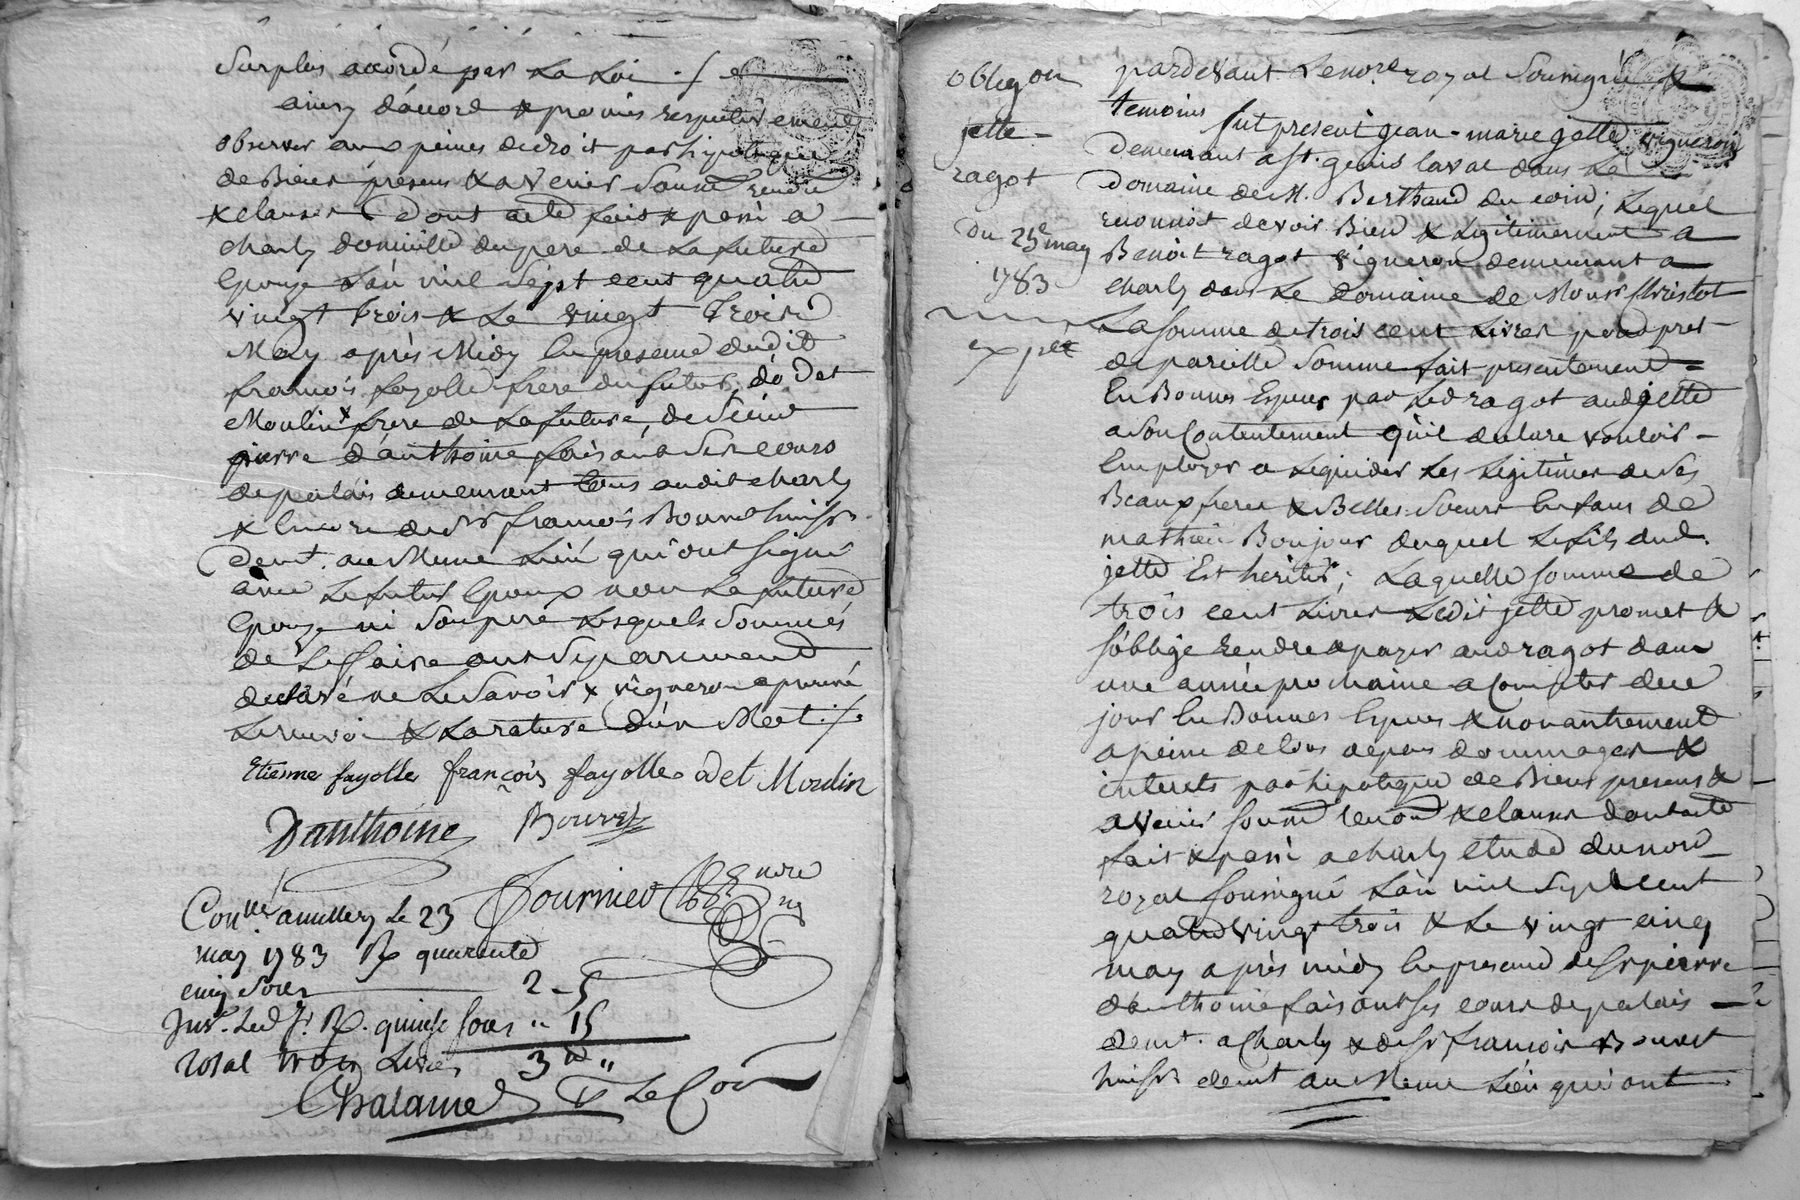 Surplus accordé par La Loi ./.
ainsy d'acord & promis respectivement
observer aux peines de droit par hipoteque
de Biens présens & avenir Soumon renon
& clauses Dont acte fait & passé a
charly domicille du pere de La future
Epouze L'an mil Sept cent quatre
vingt trois & Le vingt Trois
May après Midy En presence dudit
françois fayolle frere du futur, d'odet
Moulin x frere de La future, de Sieur
pierre d'anthoine faisant Ses cours
de palais demeurant tous audit charly
& Encore de Sr françois Bouvet huissr.
Demt. au Meme Lieu qui ont Signé
avec Le futur Epoux non La future
Epouze ni Son pere Lesquels Sommés
de Le faire ont Separement
declaré ne Le Savoir x vigneron aprouvé
Le renvoi & La rature d'un Mot ./.
Etienne fayolle françois fayolle odet Moulin
Danthoine Bouvet
Fournier nore
Conllé a millery Le 23
may 1783 R quarente
cinq Sols 2 - 5
Ins. Led. J. R. quinze Sols " 15
Total trois Livres 3 "
Chalamel
obligon
jette -
ragot
du 25e may
1783
expée
pardevant Le nore royal Soussigné &
temoins
fut present jean-marie jette vigneron
Demeurant a St. genis laval dans Le
Domaine de M. Berthaud du coin; Lequel
reconnoit devoir Bien & Legitimement a
Benoit ragot vigneron demeurant a
charly dans Le domaine de Monsr Christot
La Somme de trois cent Livres pour pret
de pareille Somme fait presentement
En Bonnes Especes par Led ragot aud jette
a Son Contentement qu'il declare vouloir -
Employer a Liquider Les Legitimes de Ses
Beaux freres & Belles Soeurs Enfans de
mathieu Bonjour duquel Le fils dud.
jette Est heritier; Laquelle Somme de
trois cent Livres Ledit jette promet &
S'oblige rendre & payer aud ragot dans
une année prochaine a Compter de ce
jour En Bonnes Especes & non autrement
a peine de tous depens dommages &
interets par hipoteque de Biens presens &
avenir Soumon renon & clauses dont acte
fait & passé a charly etude du nore
royal Soussigné L'an mil Sept cent
quatre vingt trois & Le vingt cinq
may après midy En presence de Sr pierre
d'anthoine faisant Ses cours de palais
demt. a Charly & de Sr françois Bouvet
huissr demt au Meme Lieu qui ont